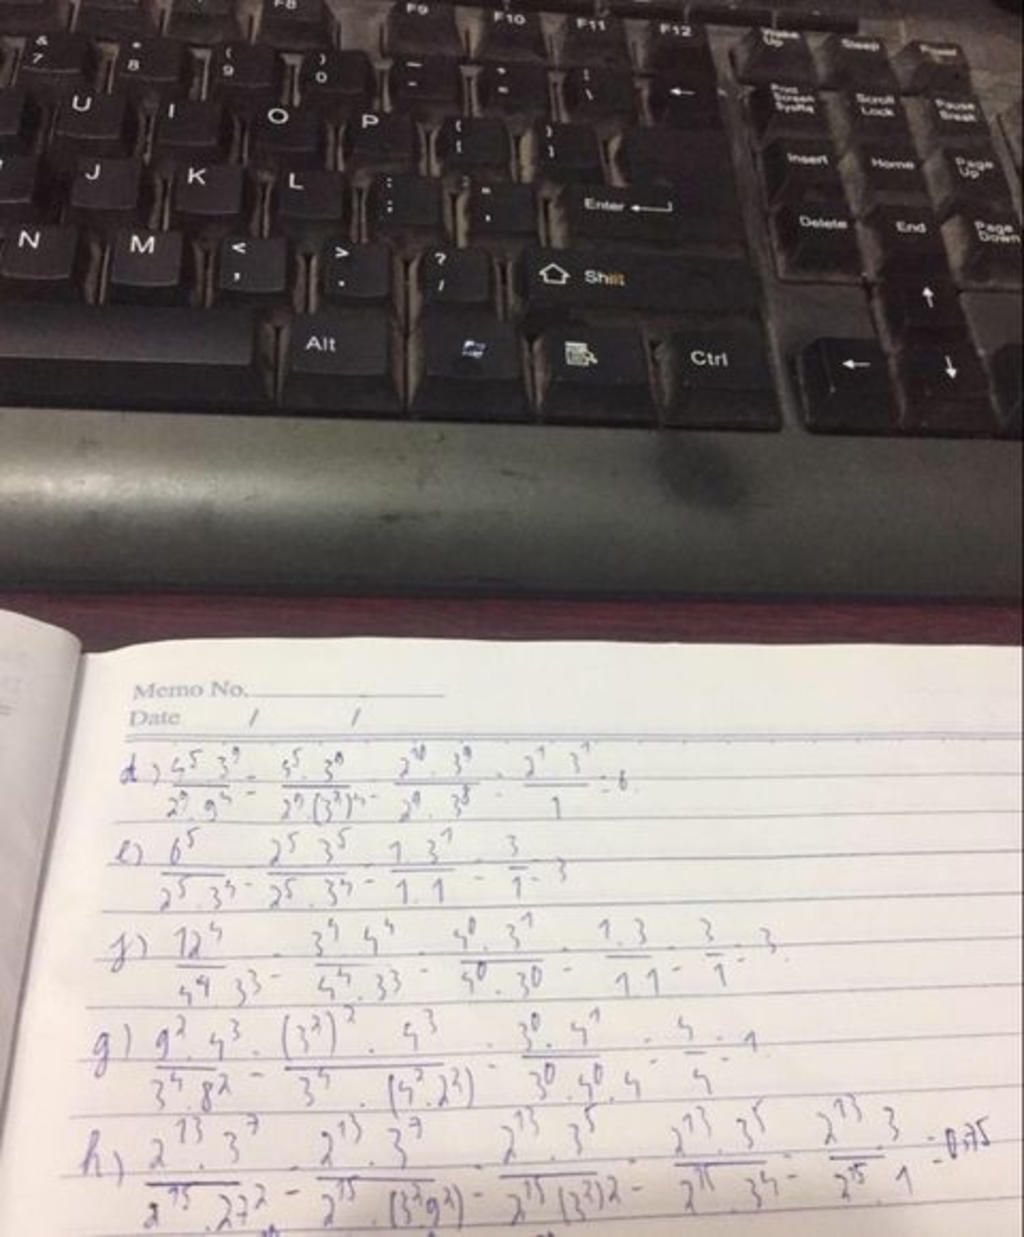 F8 F9 F10 F11 F12 Wake Up Sleep Power
& 7 * 8 ( 9 ) 0 _ - + = | \ ← Print Screen SysRq Scroll Lock Pause Break
U I O P { [ } ] Insert Home Page Up
J K L : ; " ' Enter Delete End Page Down
N M < , > . ? / Shift ↑
Alt Ctrl ← ↓
Memo No.
Date / /
d) 4^5.3^9/2^9.9^4 = 4^5.3^9/2^9.(3^2)^4 = 2^10.3^9/2^9.3^8 = 2^1 3^1/1 = 6.
e) 6^5/2^5.3^4 = 2^5.3^5/2^5.3^4 = 1.3^1/1.1 = 3/1 = 3
f) 12^4/4^4 3^3 = 3^4.4^4/4^4.3^3 = 4^0.3^1/4^0.3^0 = 1.3/1.1 = 3/1 = 3.
g) 9^2.4^3/3^4.8^2 = (3^2)^2.4^3/3^4.(4^2.2^2) = 3^0.4^1/3^0.4^0.4 = 4/4 = 1.
h) 2^13.3^7/2^15.27^2 = 2^13.3^7/2^15.(3^2 9^2) = 2^13.3^5/2^15(3^2)^2 = 2^13.3^5/2^15 3^4 = 2^13.3/2^15.1 = 0,75